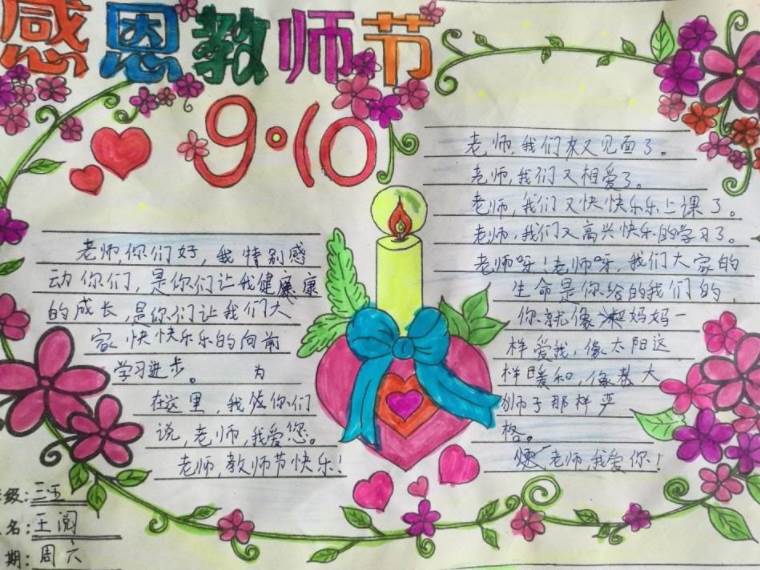 感恩教师节
9·10
老师,你们好,我特别感
动你们,是你们让我健康康
的成长,是你们让我们大
家快快乐乐的向前
学习进步。 为
在这里,我依你们
说,老师,我爱您。
老师,教师节快乐!
老师,我们来又见面了。
老师,我们又相爱了。
老师,我们又快快乐乐上课了。
老师,我们又高兴快乐的学习了。
老师呀!老师呀,我们大家的
生命是你给的我们的,
你就像妈妈一
样爱我,像太阳这
样暖和,像
师子那样严
格。
老师,我爱你!
级:三五
名:王阅
期:周六